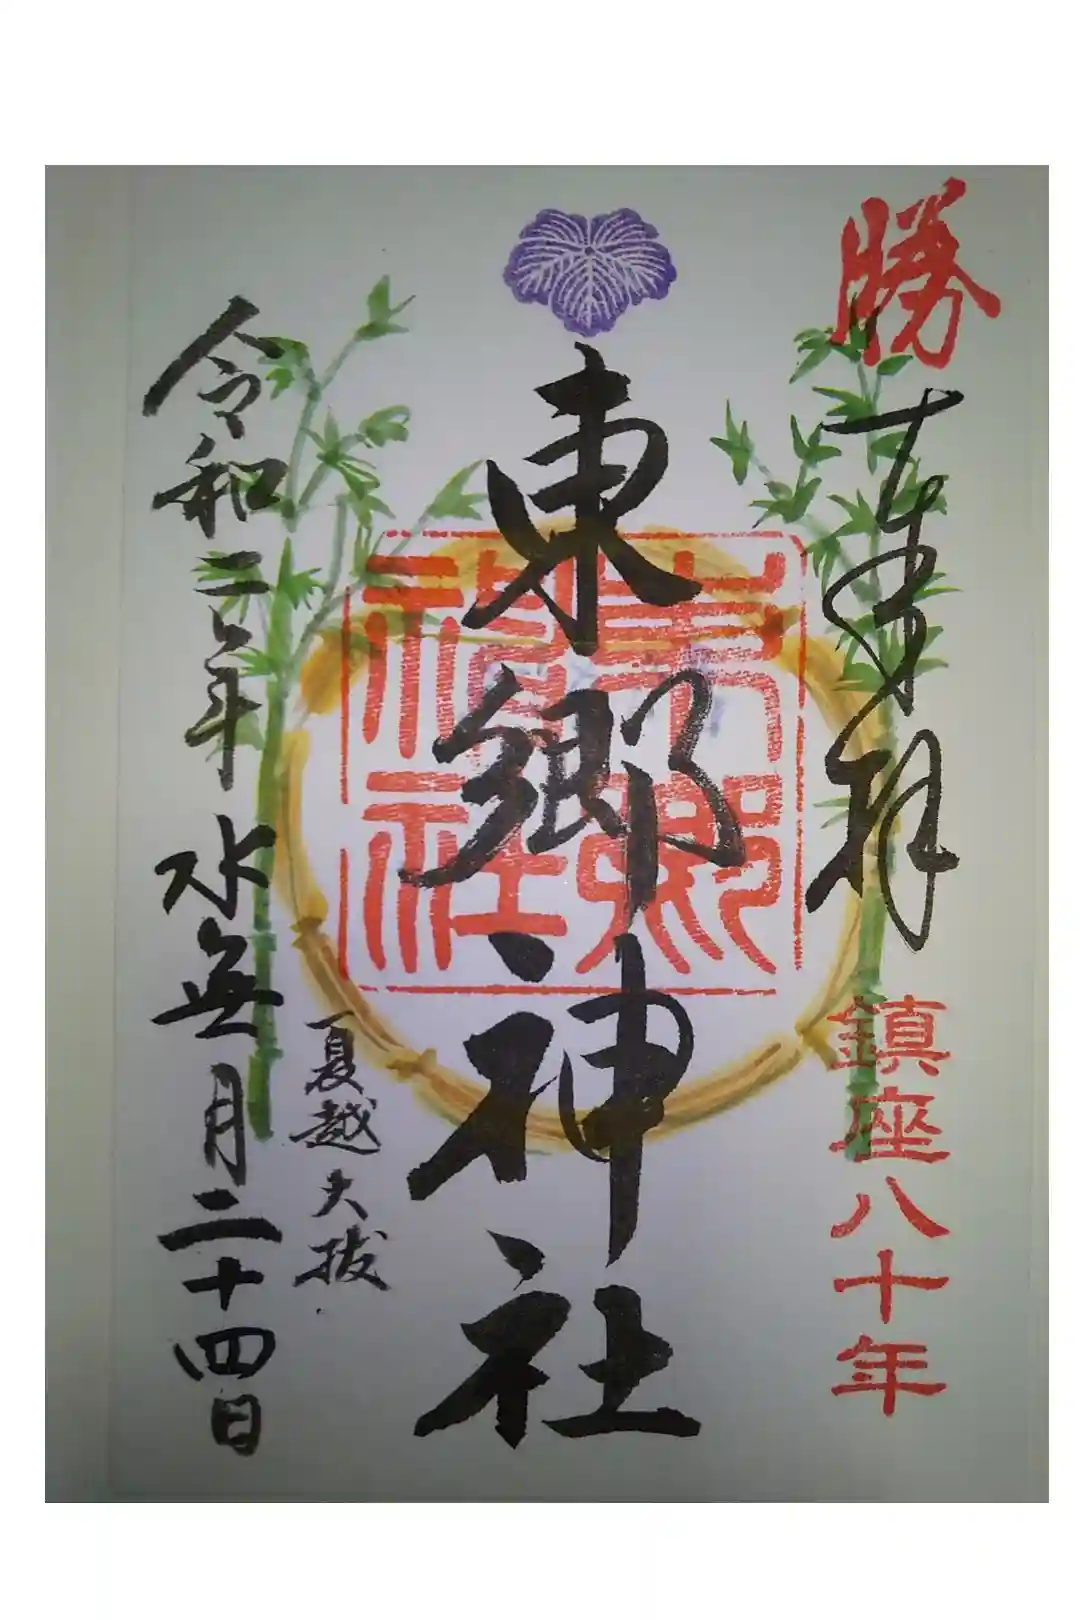 勝
奉拝
鎮座八十年
東郷神社
東郷神社
夏越大抜
令和二年水無月二十四日